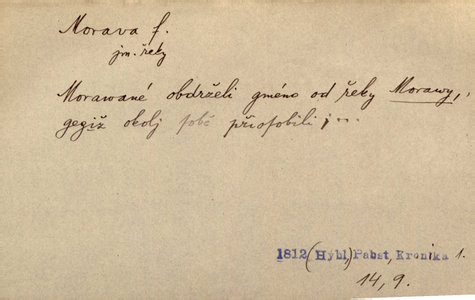 Morava f.
jm. řeky
Morawané obdrželi gméno od řeky Morawy,
gegiž okolj sobě přiosobili;...
1812 (Hýbl,) Pabst, Kronika 1.
14, 9.